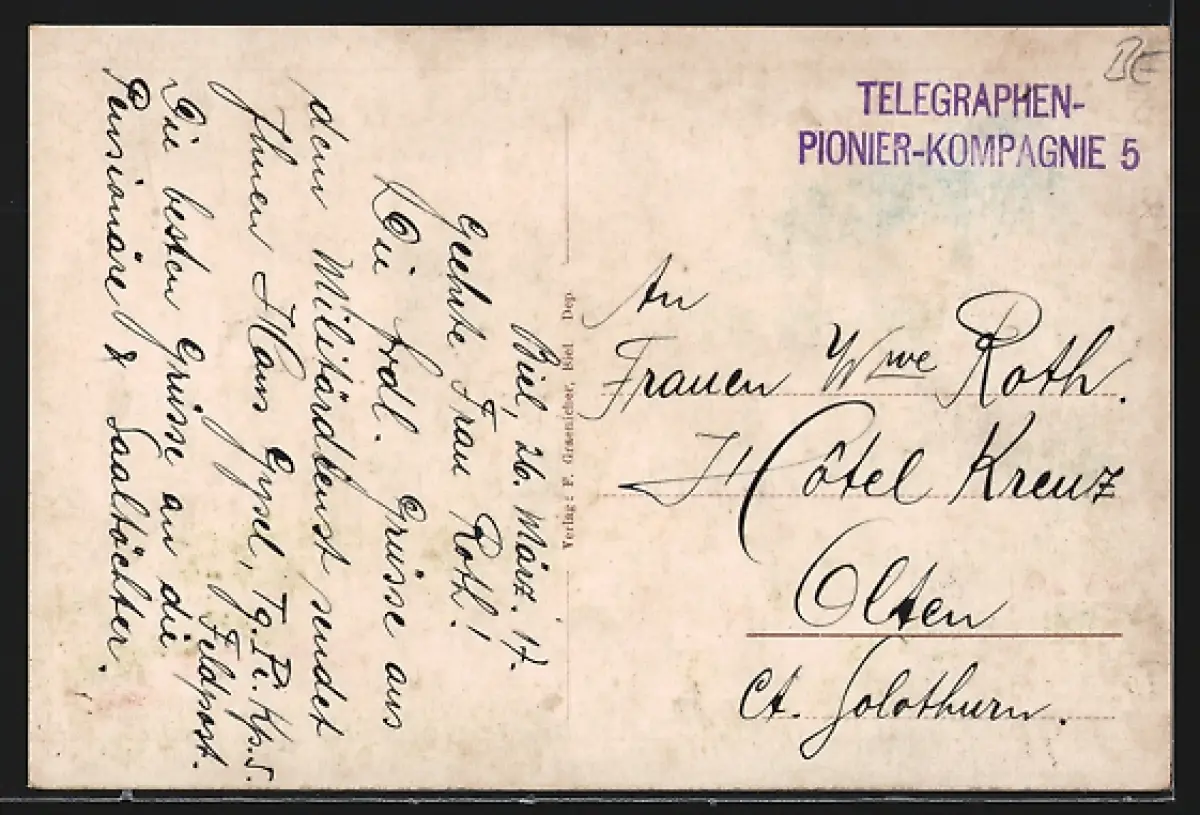 BE
TELEGRAPHEN-
PIONIER-KOMPAGNIE 5
An
Frauen Wwe Roth.
Hôtel Kreuz
Olten
Ct. Solothurn.
Verlag: F. Graenicher, Biel Dep.
Biel, 26. März. 17.
Geehrte Frau Roth!
Die frdl. Grüsse aus
dem Militärdienst sendet
Ihnen Hans Gysel, Tg. Pi. Kp. 5.
Feldpost.
Die besten Grüsse an die
Pensionäre & Saaltöchter.